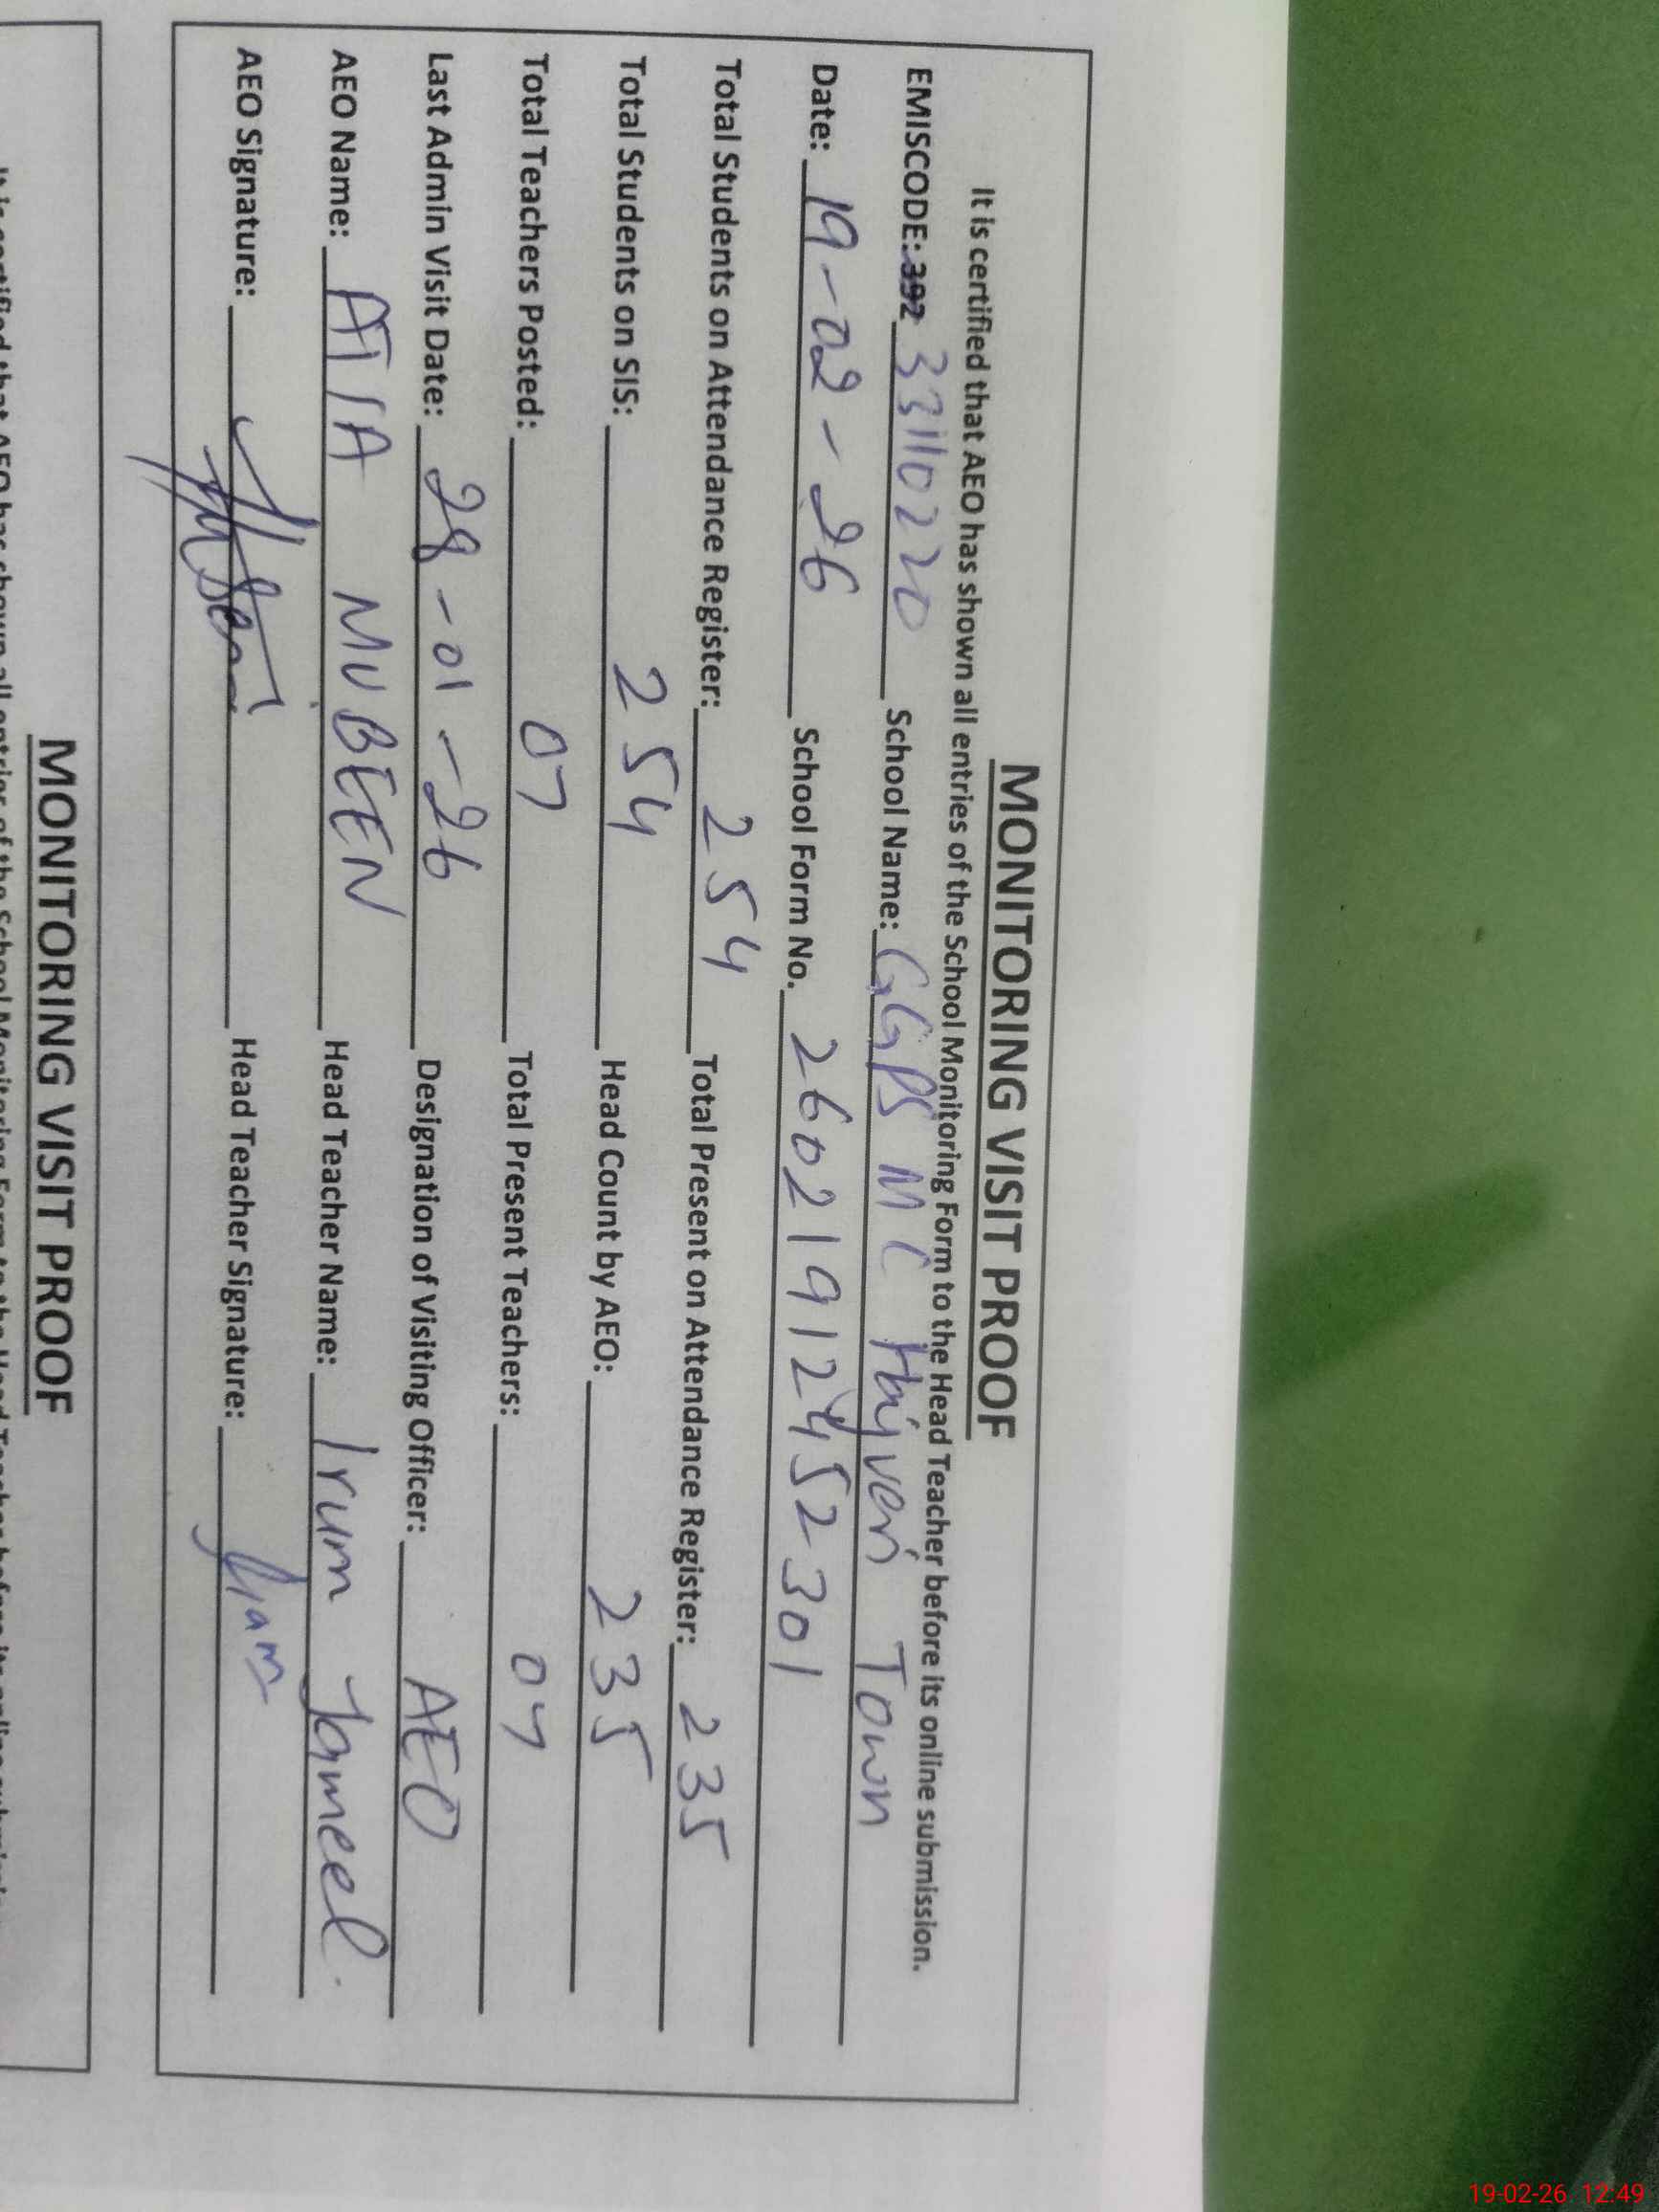 MONITORING VISIT PROOF
It is certified that AEO has shown all entries of the School Monitoring Form to the Head Teacher before its online submission.
EMISCODE: 392 33110220 School Name: GGPS MC Town
Date: 19-02-26 School Form No. 26021912452301
Total Students on Attendance Register: 254 Total Present on Attendance Register: 235
Total Students on SIS: 254 Head Count by AEO: 235
Total Teachers Posted: 07 Total Present Teachers: 07
Last Admin Visit Date: 28-01-26 Designation of Visiting Officer: AEO
AEO Name: ATIA MUBEEN Head Teacher Name: Irum Jameel.
AEO Signature: Head Teacher Signature:
MONITORING VISIT PROOF
19-02-26 12:49